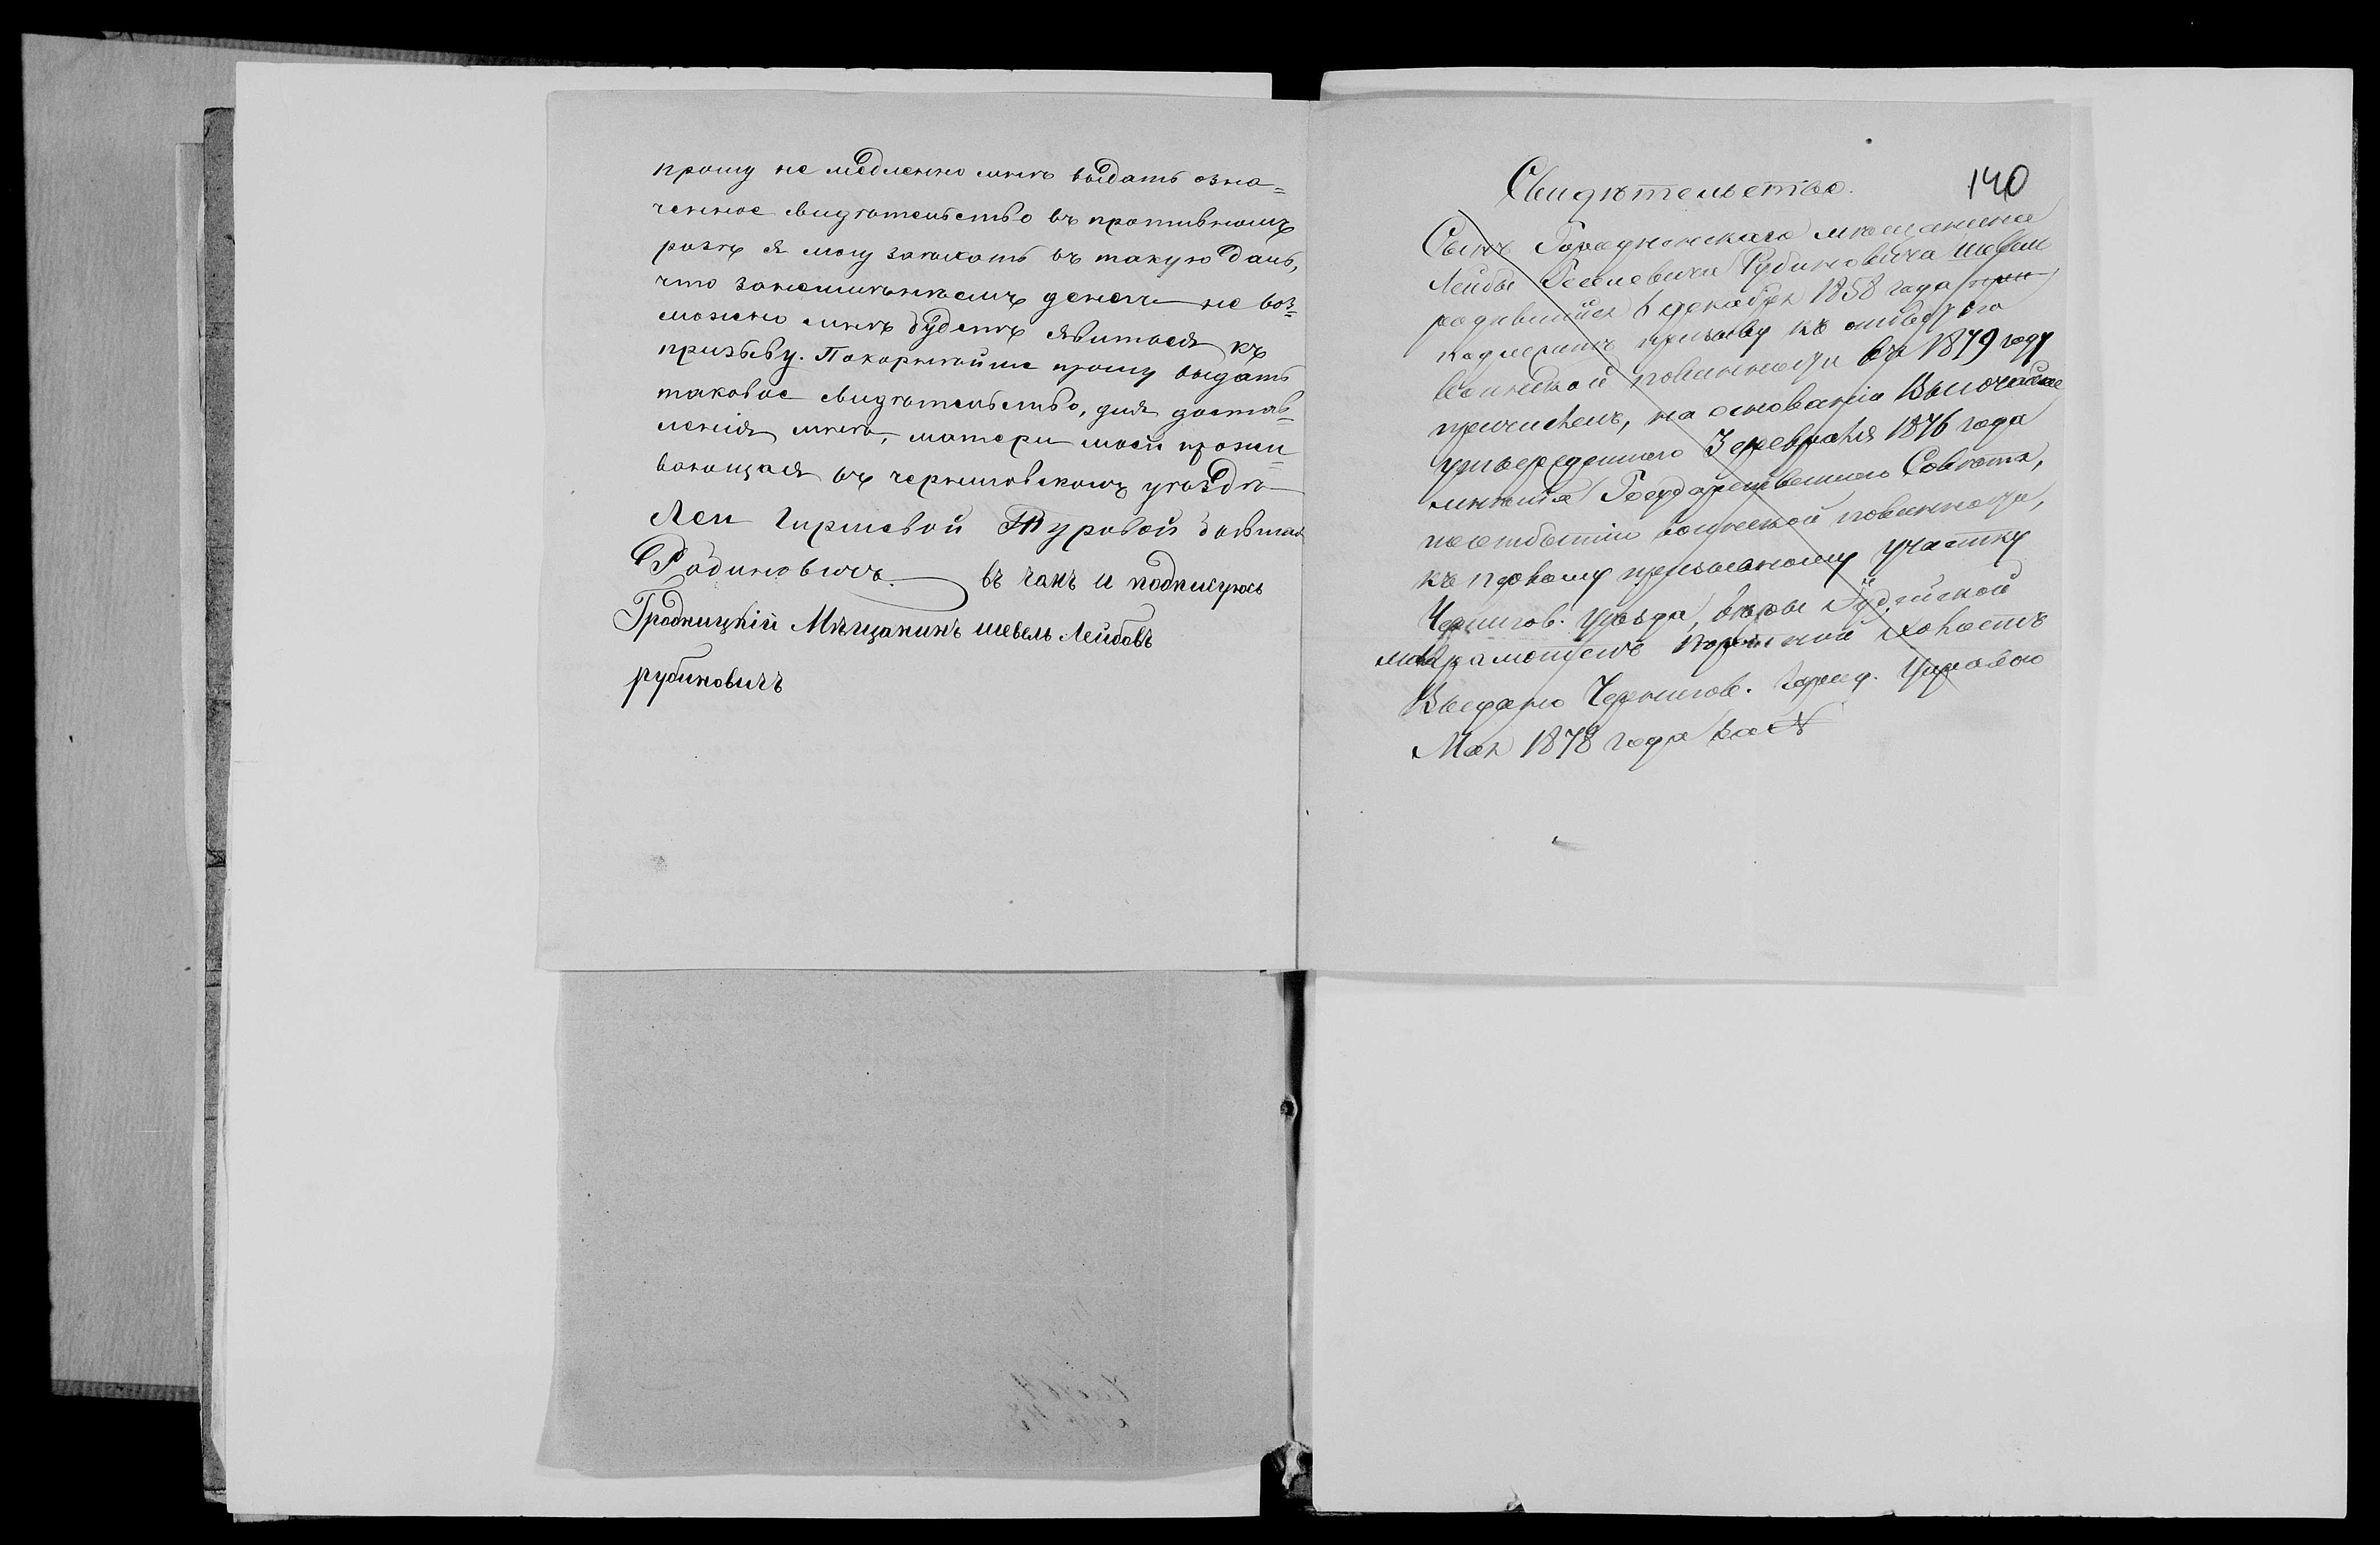 прошу не медленно мнѣ выдать озна=
ченное свидѣтельство въ противномъ
разѣ я могу заѣхать въ такую даль,
что за неимѣнѣемъ денегъ не воз=
можно мнѣ будетъ явиться къ
призыву. Покорнѣйше прошу выдать
таковое свидѣтельство, для достав=
ленія мнѣ, матери моей прожи=
вающая въ черниговскомъ уѣздѣ
Леи Гиршевой Туровой
Рабиновичъ. въ чемъ и подписуюсь
Гродницкій Мѣщанинъ шевель Лейбовъ
рубиновичъ
140
Свидѣтельство.
Сынъ Городнянскаго мѣщанина
Лейбы Рубиновича Шевель
родившійся 6 декабря 1858 года
подлежитъ призыву къ отбытію
воинской повинности въ 1879 году
причисленъ, на основаніи Высочайше
утвержденнаго 3 февраля 1876 года
мнѣнія Государственнаго Совѣта,
по отбытію воинской повинности,
къ первому призывному участку
Чернигов. уѣзда, вѣры Іудейской
грамотенъ холостъ
Выдано Чернигов. Управою
Мая 1878 года за №